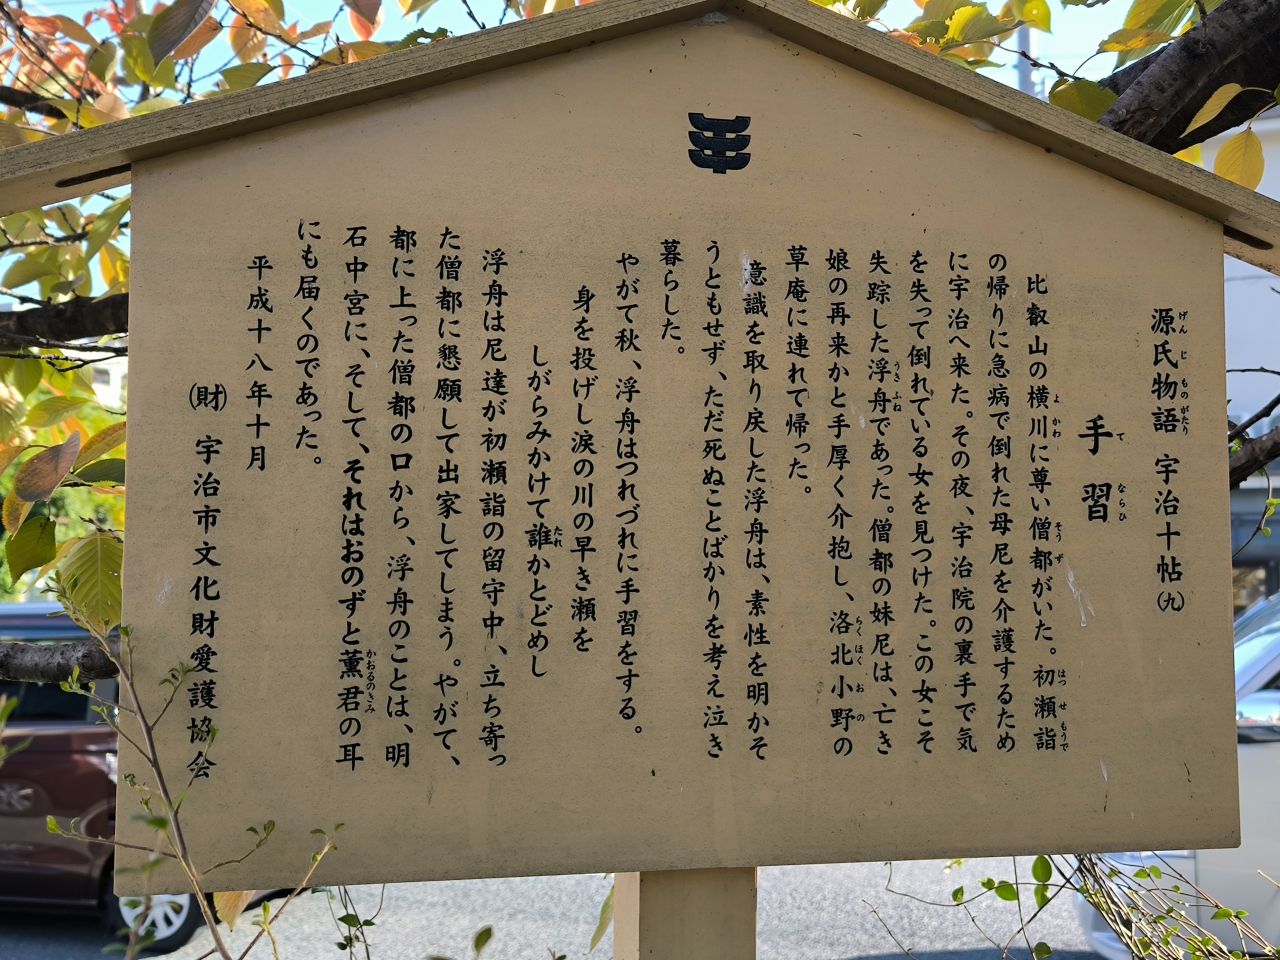 源氏物語 宇治十帖㈨
手習
比叡山の横川に尊い僧都がいた。初瀬詣
の帰りに急病で倒れた母尼を介護するため
に宇治へ来た。その夜、宇治院の裏手で気
を失って倒れている女を見つけた。この女こそ
失踪した浮舟であった。僧都の妹尼は、亡き
娘の再来かと手厚く介抱し、洛北小野の
草庵に連れて帰った。
意識を取り戻した浮舟は、素性を明かそ
うともせず、ただ死ぬことばかりを考え泣き
暮らした。
やがて秋、浮舟はつれづれに手習をする。
身を投げし涙の川の早き瀬を
しがらみかけて誰かとどめし
浮舟は尼達が初瀬詣の留守中、立ち寄っ
た僧都に懇願して出家してしまう。やがて、
都に上った僧都の口から、浮舟のことは、明
石中宮に、そして、それはおのずと薫君の耳
にも届くのであった。
平成十八年十月
(財) 宇治市文化財愛護協会